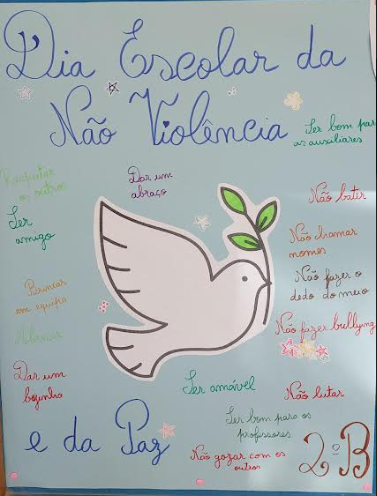 Dia Escolar da
Não Violência
Ser bom para
as auxiliares
Respeitar
os outros
Dar um
abraço
Não bater
Ser
amigo
Não chamar
nomes
Não fazer o
dedo do meio
Brincar
em equipa
Não fazer bullying
Dar um
beijinho
Ser amável
Não lutar
Ser bom para os
professores
e da Paz
Não gozar com os
outros
2º B